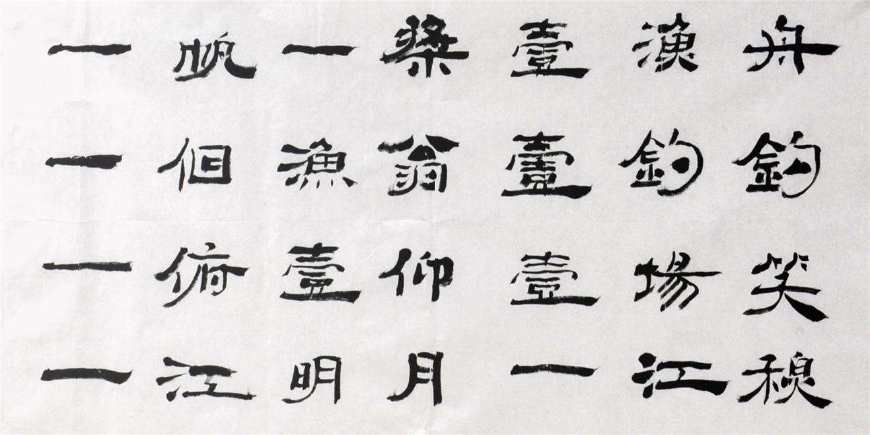 一帆一槳壹漁舟
一個漁翁壹釣鈎
一俯壹仰壹場笑
一江明月一江秋